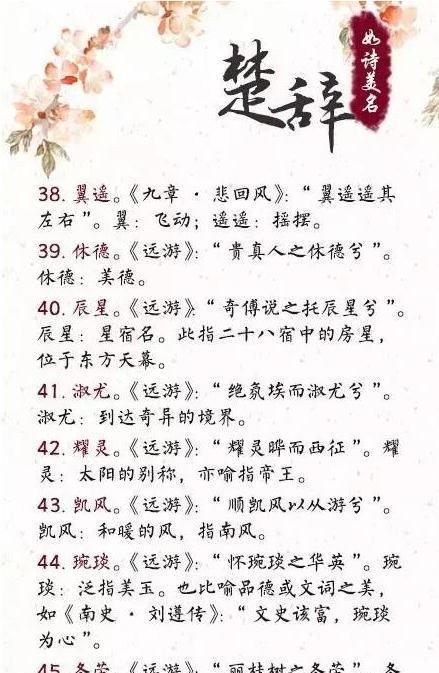 楚辞
如诗美名
38. 翼遥。《九章 · 悲回风》：“翼遥遥其
左右”。翼：飞动；遥遥：摇摆。
39. 休德。《远游》：“贵真人之休德兮”。
休德：美德。
40. 辰星。《远游》：“奇傅说之托辰星兮”。
辰星：星宿名。此指二十八宿中的房星，
位于东方天幕。
41. 淑尤。《远游》：“绝氛埃而淑尤兮”。
淑尤：到达奇异的境界。
42. 耀灵。《远游》：“耀灵晔而西征”。耀
灵：太阳的别称，亦喻指帝王。
43. 凯风。《远游》：“顺凯风以从游兮”。
凯风：和暖的风，指南风。
44. 琬琰。《远游》：“怀琬琰之华英”。琬
琰：泛指美玉。也比喻品德或文词之美，
如《南史 · 刘遵传》：“文史该富，琬琰
为心”。
45. 冬荣。《远游》：“丽桂树之冬荣”。冬